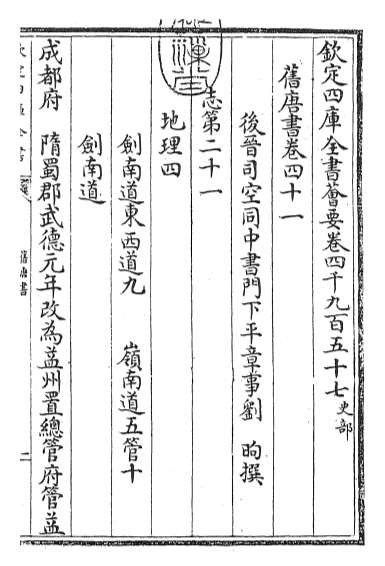 欽定四庫全書薈要卷四千九百五十七史部
舊唐書卷四十一
後晉司空同中書門下平章事劉 昫撰
志第二十一
地理四
劍南道東西道九 嶺南道五管十
劍南道
成都府 隋蜀郡武德元年改為益州置總管府管益